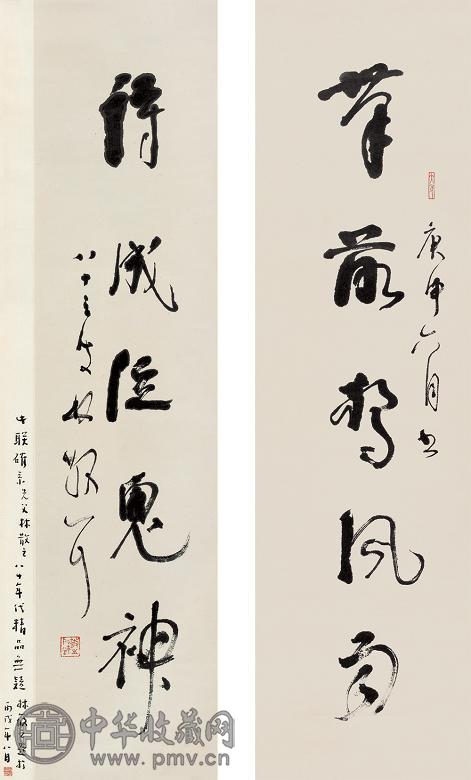 筆落驚風雨
庚申六月書
詩成泣鬼神
八十三叟林散耳
此联確系先父林散之八十年代精品無疑 林筱之鑒於
丙戌年八月
中华收藏网
www.pmv.cn